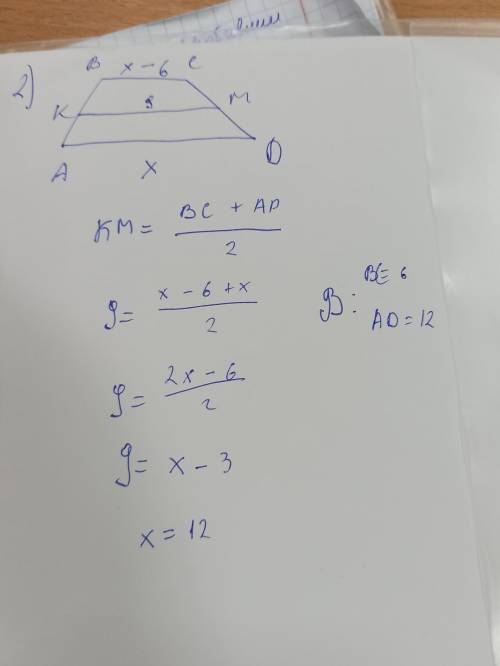 2)
B x - 6 C
K 9 M
A x D
KM = \frac{BC + AD}{2}
9 = \frac{x - 6 + x}{2}
В: BC = 6
AD = 12
9 = \frac{2x - 6}{2}
9 = x - 3
x = 12